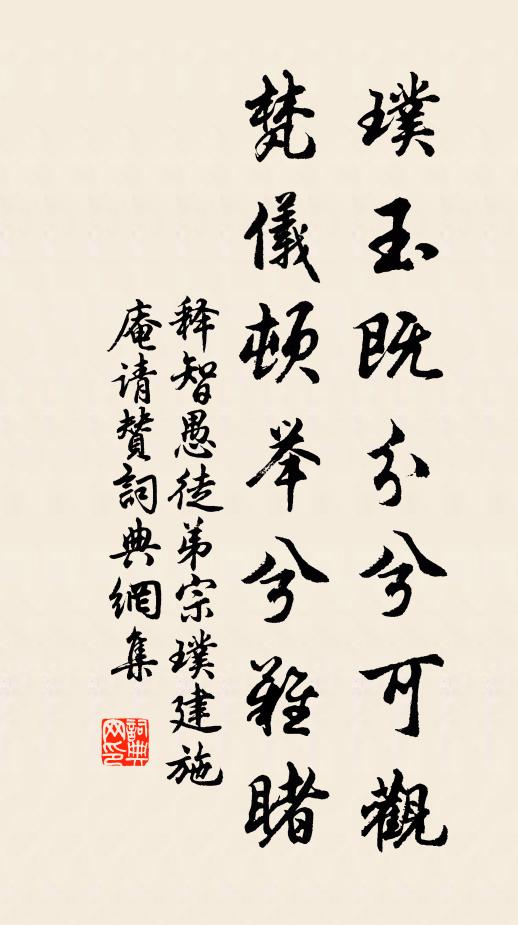 璞玉既分兮可觀
梵儀頓举兮難睹
释智愚徒弟宗璞建施
庵请赞詞典網集
詞典網印